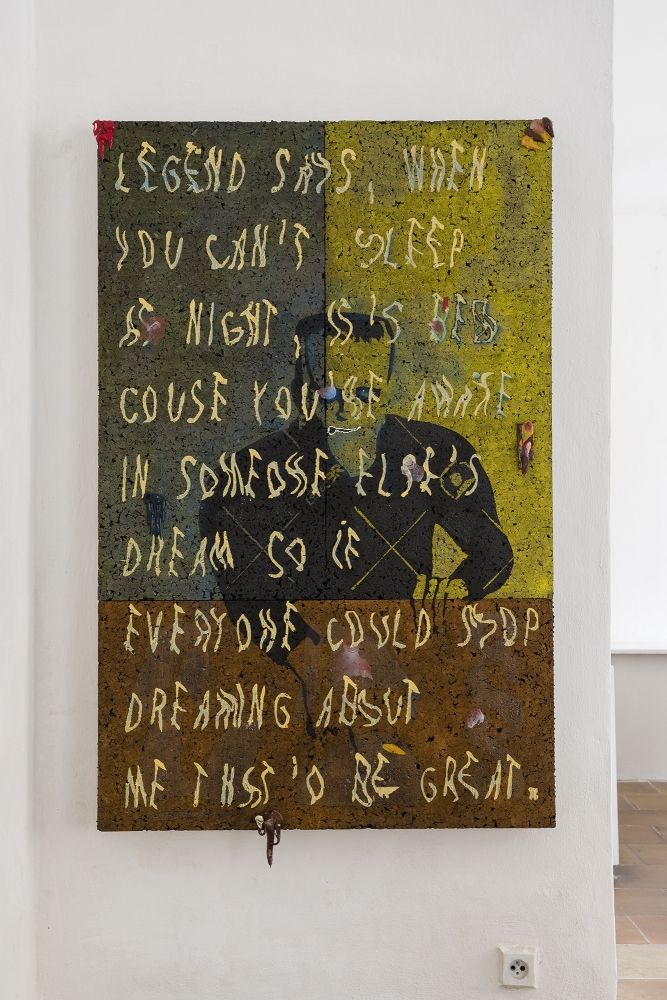 LEGEND SAYS, WHEN
YOU CAN'T SLEEP
AT NIGHT, IT'S BE
COUSE YOU'RE AWAKE
IN SOMEONE ELSE'S
DREAM SO IF
EVERYONE COULD STOP
DREAMING ABOUT
ME THAT'D BE GREAT.